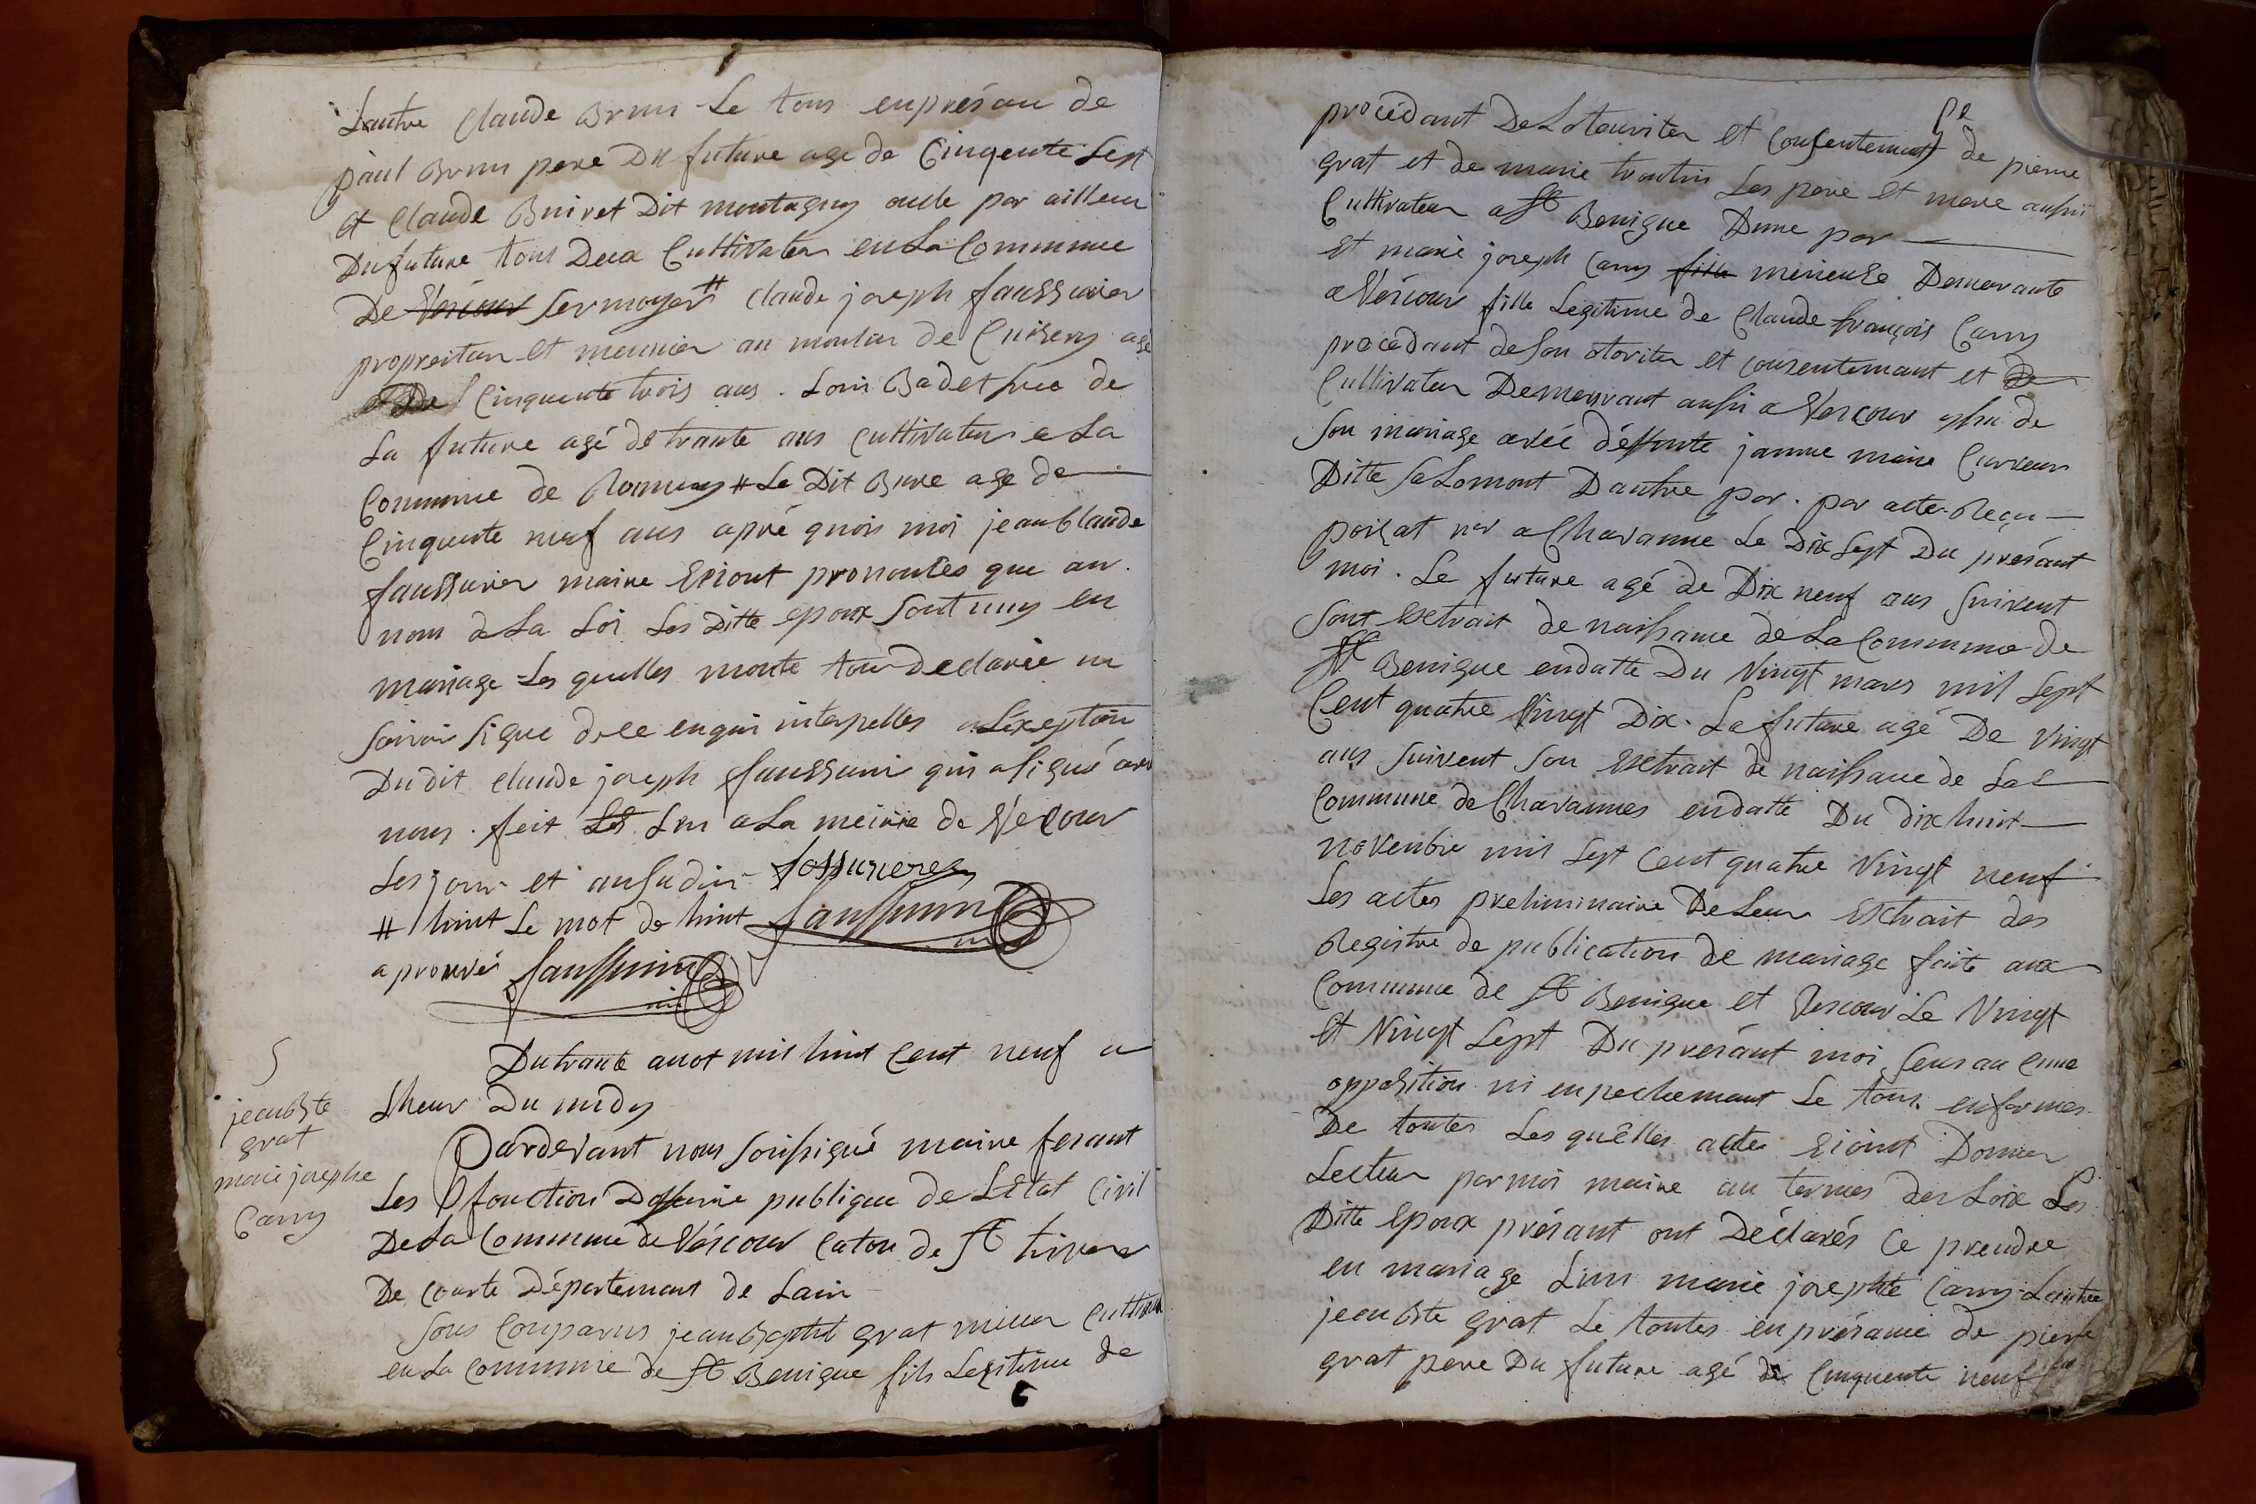 Lautre Claude Brun Le tous enprésan de
paul Brun pere Du future age de Cinqente Sept
et Claude Buiret Dit montagny oncle par ailleur
Du future tous Deux Cultivateur en La Commune
De Vescour Sermoyer # claude joseph faussurier
proprietair et meunier au moulin de Cuisery agé
De Cinquente trois ans . Loui Badet frere de
La future agé de trante ans cultivateur a La
Commune de Romenay # Le Dit age de
Cinquente neuf ans apré quois moi jean Claude
faussurier maire Eziont prononcés que au
nom de La Loi Les Ditte epoux Sont unis en
mariage Les quelles monte tous Declarée ne
Savoir Signe dece enqui interpelles a Lexeption
Dudit claude joseph faussurie qui a Signé avec
nous . fait Let Lu a La meirie de Vecour
Les jour et ansudi fossurere
# huit Le mot de huit faussurier
aprouvés faussurier
5
jean Bte
grat
marie josephe
Carry
Du trante auot mil huit Cent neuf a
Lheur Du midy
Pardevant nous Soussigné maire fesant
Les fonction Dofficiè publique de LEtat Civil
De La Commune de Véscour Caton de St triviers
De Courte Département de Lain
Sons Comparus jean Baptist grat mineur Cultivat
en La Commune de St Benigne fils Legitime de
procédant De Lotouriter et Consentement de pierre
grat et de marie Les pere et mere aussi
Cultivateur a St Benigne Dune par
et marie joseph Carry fille mineure Demeurante
a Véscour fille Legitime de Claude françois Carry
procédant de Son otoriter et consentemant et De
Cultivateur Demeurant aussi a Vescour yssu de
Son mariage avéc défunte janne marie Curveur
Ditte Salomont Dautre par . par acte Reçu
poizat nre a Chavanne Le Dix Sept Du présant
moi . Le future agé de Dix neuf ans Suivent
Sont Extrait de naissance de La Commune de
St Benigne endatte Du Vingt mars mil Sept
Cent quatre Vingt Dix . La future agé De Vingt
ans Suivent Son Extrait de naissance de La
Commune de Chavannes endatte Du dix huit
novenbre mil Sept Cent quatre Vingt neuf
Les actes preliminaire De Leur Extrait des
Registre de publication de mariage faite aux
Commune de St Benigne et Vescour Le Vingt
et Vingt Sept Du présant moi Sens au cune
oppozition ni enpechemant Le tous enformes
De toutes Les quêlles actes Eziont Donner
Lecteur par moi maire au termes des Loix Les
Ditte Epoux présant ont Déclarés Ce prendre
en mariage Lun marie josephte Carry Lautre
jean Bte grat Le toutes enprésance de pierre
grat pere Du future agé de Cinquente neuf